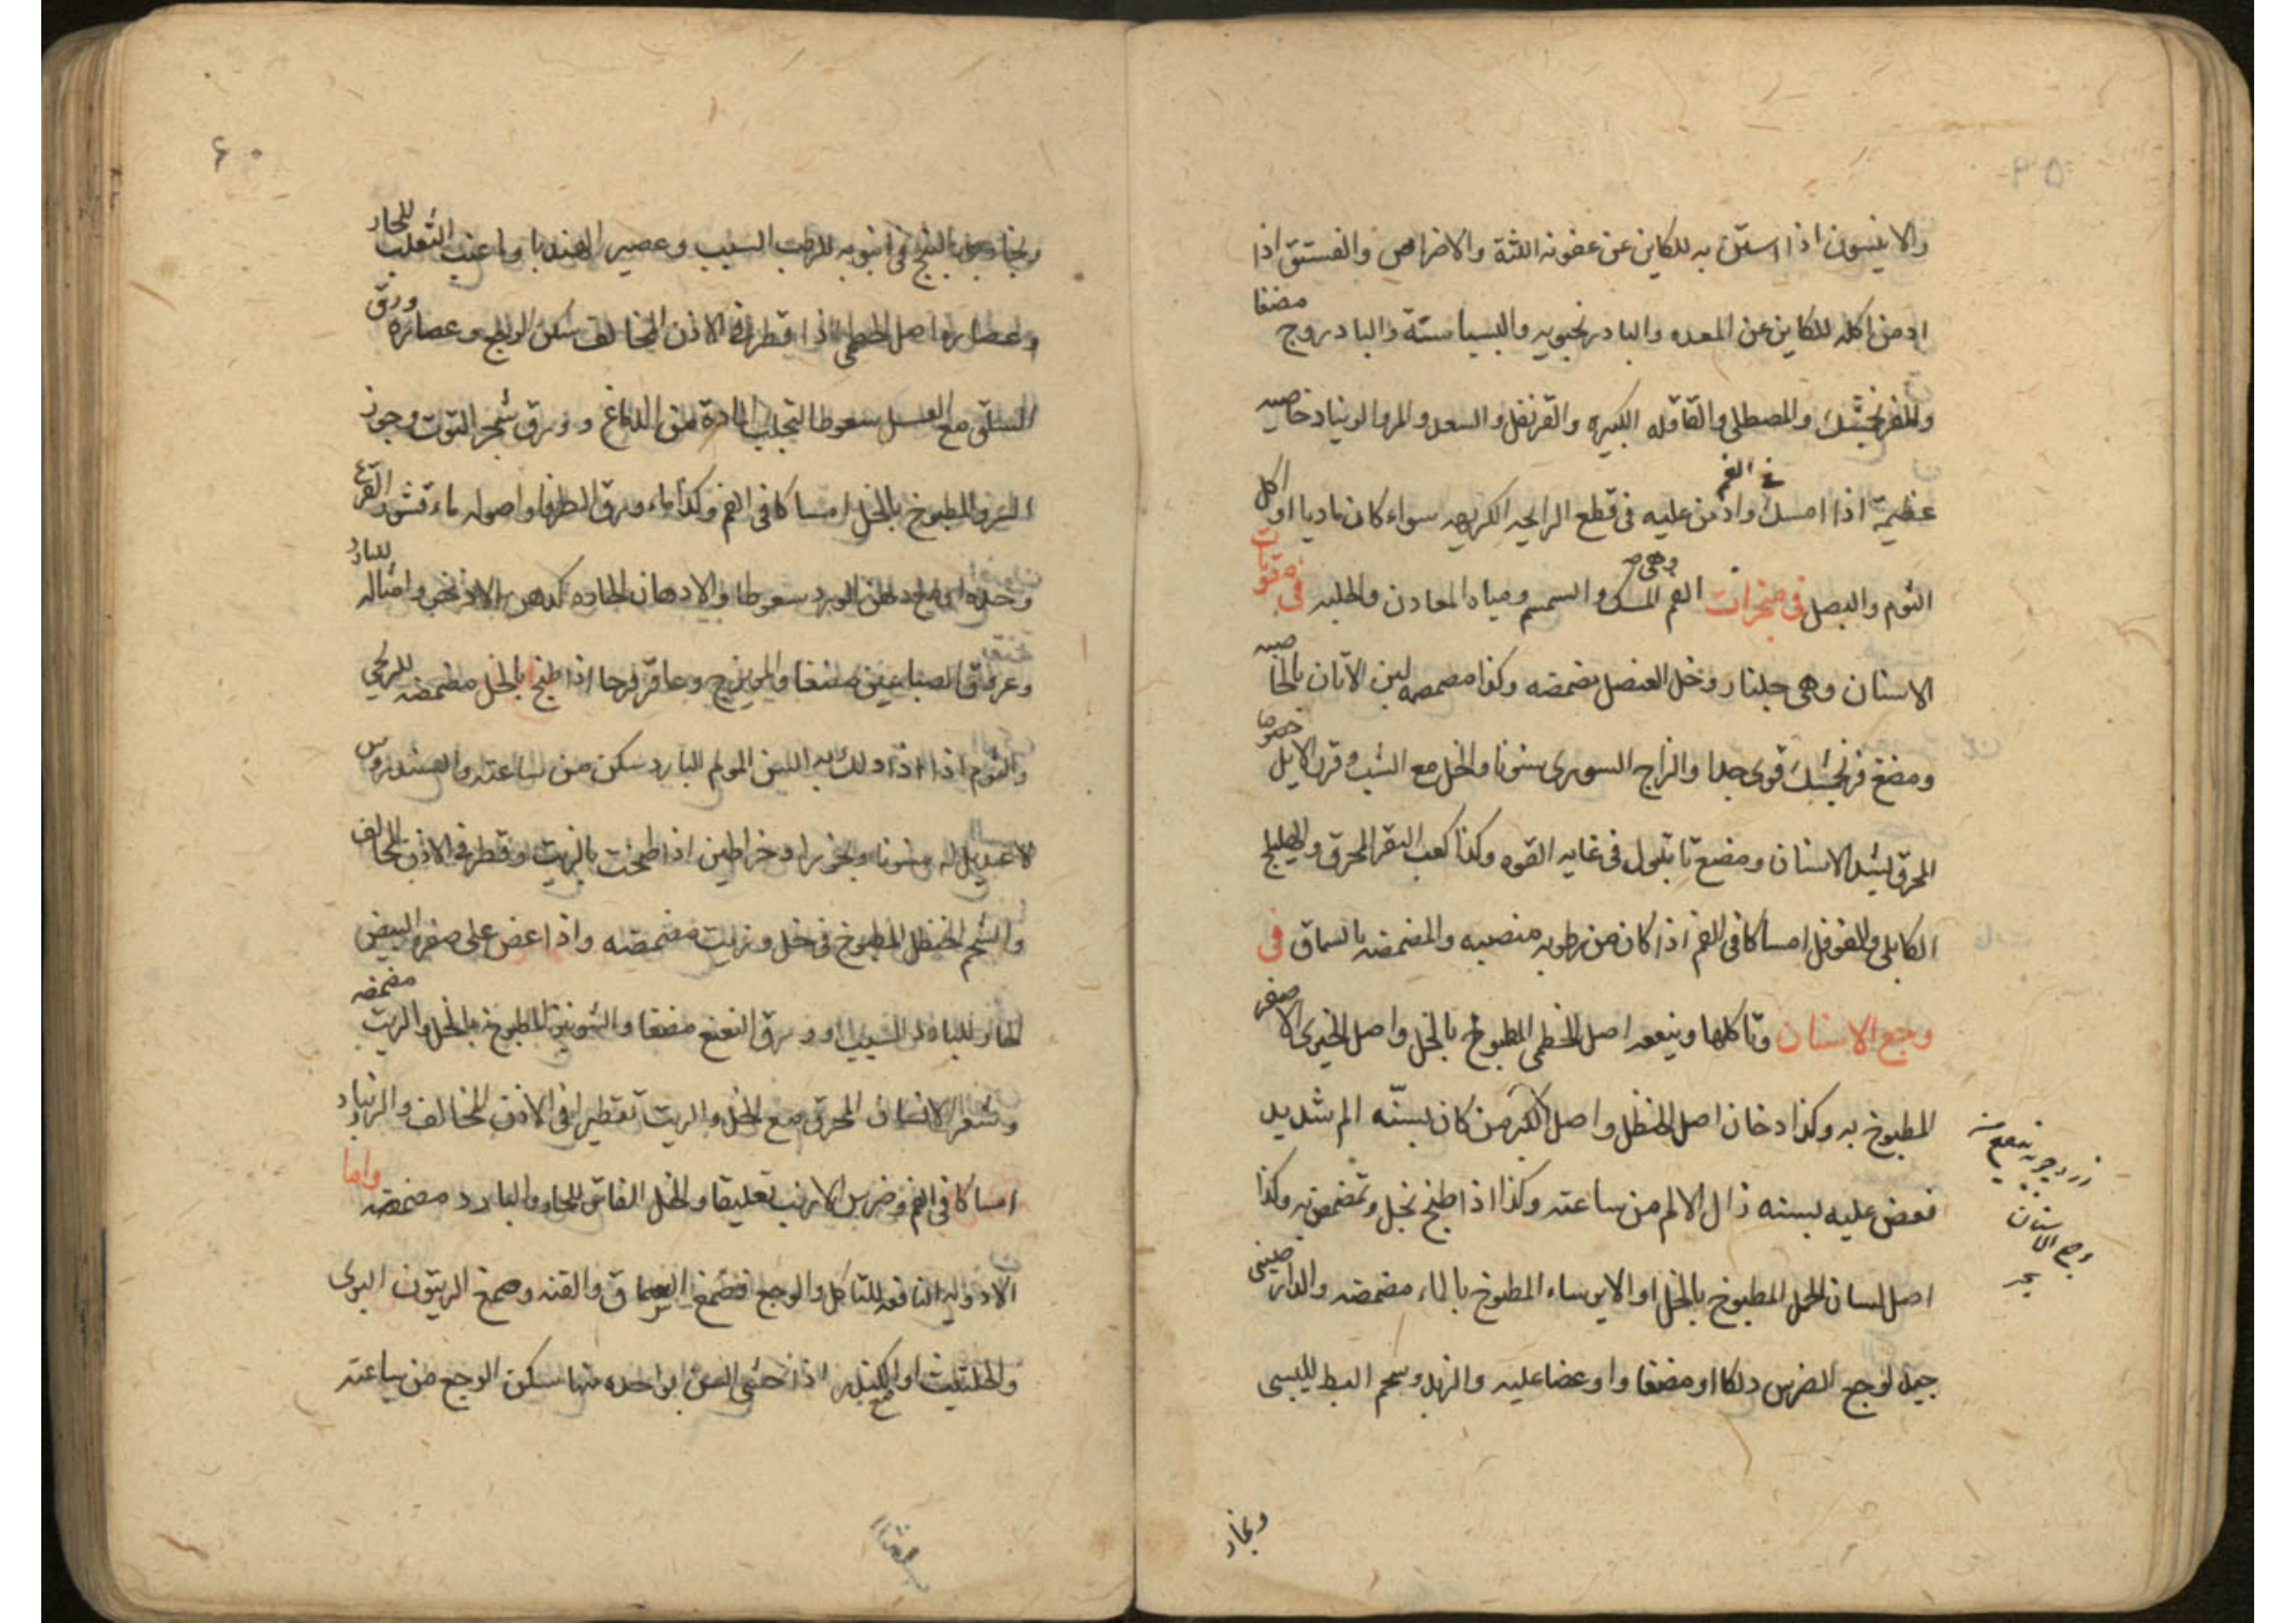 ۵۹
والانيسون اذا استن به للكاين عن عفونه اللثة والاضراص والفستق اذا
ادمن اكله للكاين عن المعده والبادرنجبويه والبسباسة والبادروج مضغا
والفرنجمشك والمصطكى والقاقله الكبيره والقرنفل والسعد والمر والريناد خاصيه
عظيمة اذا امسك فى الفم وادمن عليه فى قطع الرايحه الكريهه سواء كان باديا او اكل
الثوم والبصل فى مبخرات الفم وهى المسك والسمسم ومياه المعادن والحلبه فى مقويات
الاسنان وهى جلنار وخل العنصل مضمضه وكذا مضمضه لبن الاتان بالخاصيه
ومضغ فرنجمشك قوى جدا والزاج السورى سنونا والخل مع الشب وقرن الايل خصوصا
المحرق ليشد الاسنان ومضغ تانبول فى غايه القوه وكذا كعب البقر المحرق والهليلج
الكابلى والفوفل امساكا فى الفم اذا كان من رطوبه منصبيه والمضمضه بالسماق فى
وجع الاسنان وتاكلها وينفعه اصل الخطمى المطبوخ بالخل واصل الخيرى الاصفر
المطبوخ به وكذا دخان اصل الحنظل واصل الكبر من كان بسنّه الم شديد
فعض عليه بسنه زال الالم من ساعته وكذا اذا طبخ بخل وتمضمض به وكذا
اصل لسان الحمل المطبوخ بالخل او الايرساء المطبوخ بالماء مضمضه والدارصينى
جيد لوجع الضرس دلكا او مضغا او عضا عليه والزبد وشحم البط لليبسى
وبخار
وجع الاسنان
۶۰
وبخار البنج فى انبوبه للرطب السبب وعصير الهندبا وما عنب الثعلب للحار
وعصاره اصل الخطمى اذا قطر فى الاذن المخالف سكن الوجع وعصاره ورق
السلق مع العسل سعوطا لتجلب المادة من الدماغ وورق شجر التوت وجوز
السرو المطبوخ بالخل امساكا فى الفم وكذا ماء ورق الطرفا واصوله ماء قشور القرع
وحده او مع دهن الورد سعوطا والادهان الحاده كدهن الاذخر وامثاله للبارد
وعروق الصباغين مضغا والميويزج وعاقرقرحا اذا طبخ بالخل مضمضه للريحى
والثوم اذا دلك به السن المولم البارد سكن من ساعته والسندروس
لا عديل له سنونا وبخورا وخراطين اذا طبخت بالزيت وقطر فى الاذن المخالف
والشحم الحنظل المطبوخ فى خل وزيت مضمضه واذا عض على صفره البيض
الحار للبارد السبب او ورق النعنع مضغا والشونيز المطبوخ بالخل والزيت مضمضه
وشعر الانسان المحرق مع الخل والزيت تقطيرا فى الاذن المخالف والزنباد
امساكا فى الفم وضرس الارنب تعليقا والخل الفاتر للحار والبارد مضمضه واما
الادويه النافعه للتاكل والوجع فصمغ السماق والقنه وصمغ الزيتون البرى
والحلتيت او الكبيكج اذا حشى السن بواحده منها سكن الوجع من ساعته